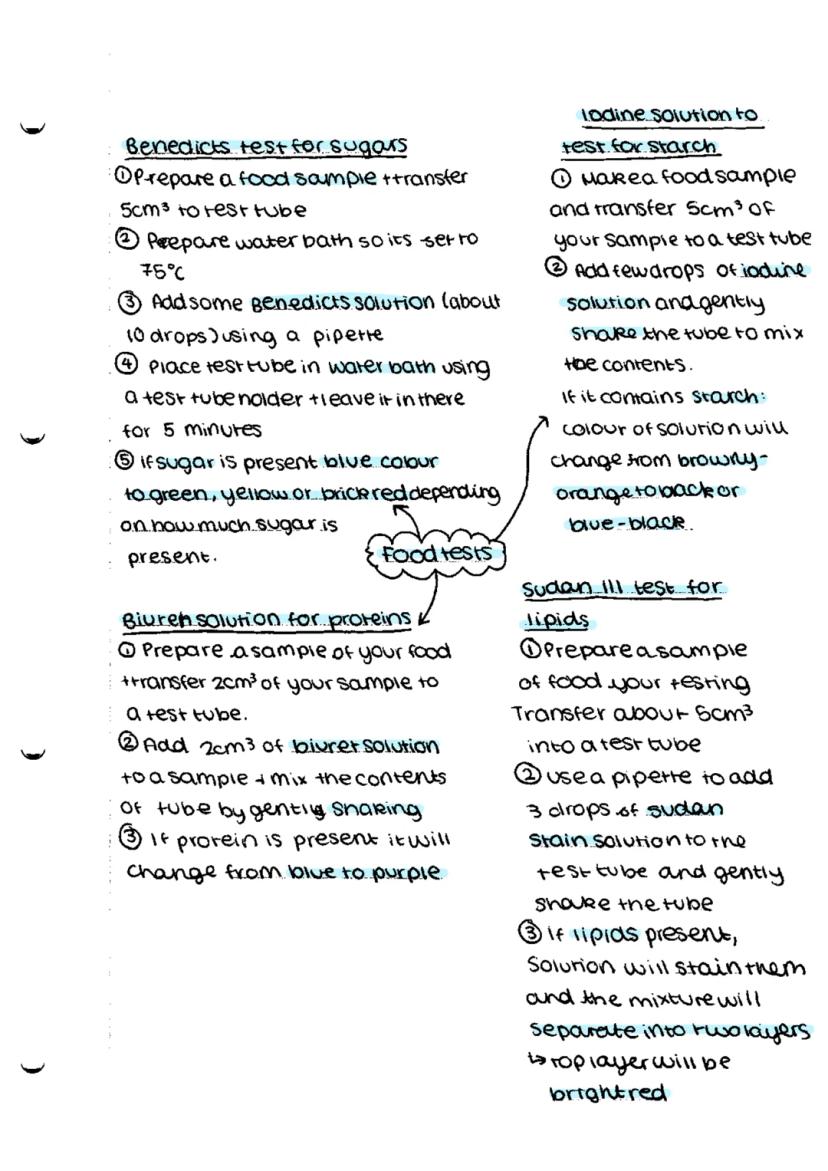 Benedicts test for sugars
① Prepare a food sample + transfer
5cm³ to test tube
② Prepare water bath so its set to
75°C
③ Add some Benedicts solution (about
10 drops) using a pipette
④ Place test tube in water bath using
a test tube holder + leave it in there
for 5 minutes
⑤ if sugar is present blue colour
to green, yellow or brick red depending
on how much sugar is
present.
Food tests
Biuret solution for proteins
① Prepare a sample of your food
+ transfer 2cm³ of your sample to
a test tube.
② Add 2cm³ of biuret solution
to a sample + mix the contents
of tube by gently shaking
③ If protein is present it will
change from blue to purple
Iodine solution to
test for starch
① Make a food sample
and transfer 5cm³ of
your sample to a test tube
② Add few drops of iodine
solution and gently
shake the tube to mix
the contents.
If it contains starch:
colour of solution will
change from browny-
orange to back or
blue-black
Sudan III test for
lipids
① Prepare a sample
of food your testing
Transfer about 5cm³
into a test tube
② use a pipette to add
3 drops of sudan
stain solution to the
test tube and gently
shake the tube
③ If lipids present,
Solution will stain them
and the mixture will
separate into two layers
↳ top layer will be
bright red